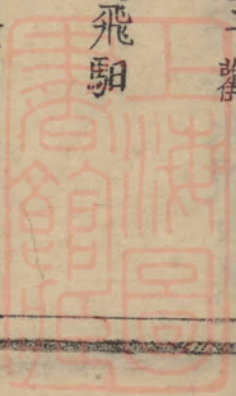 飛馹
上海圖
書館藏